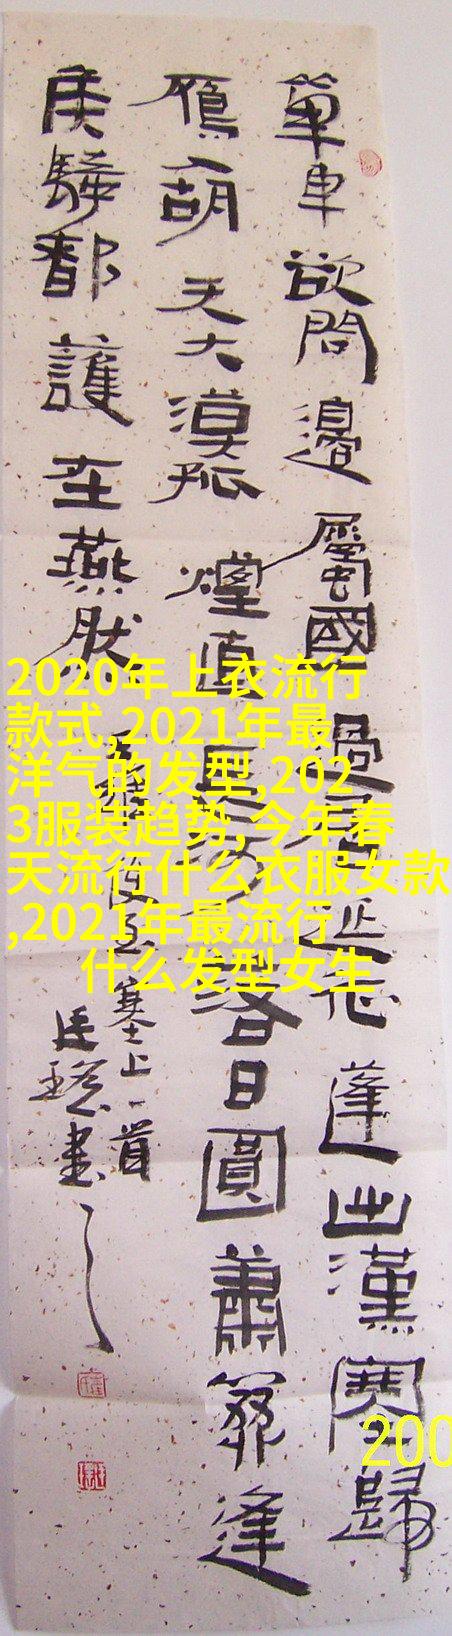 單車欲問邊屬國過居延征蓬出漢塞歸
鴈入胡天大漠孤煙直長河落日圓蕭關逢
候騎都護在燕然 王維使至塞上一首
書
2020年上衣流行
款式,2021年最
洋气的发型,202
3服装趋势,今年春
天流行什么衣服女款
,2021年最流行
什么发型女生
200